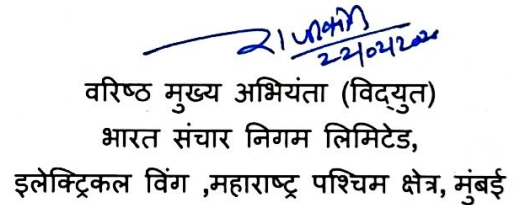 वरिष्ठ मुख्य अभियंता (विद्युत)
भारत संचार निगम लिमिटेड,
इलेक्ट्रिकल विंग ,महाराष्ट्र पश्चिम क्षेत्र, मुंबई